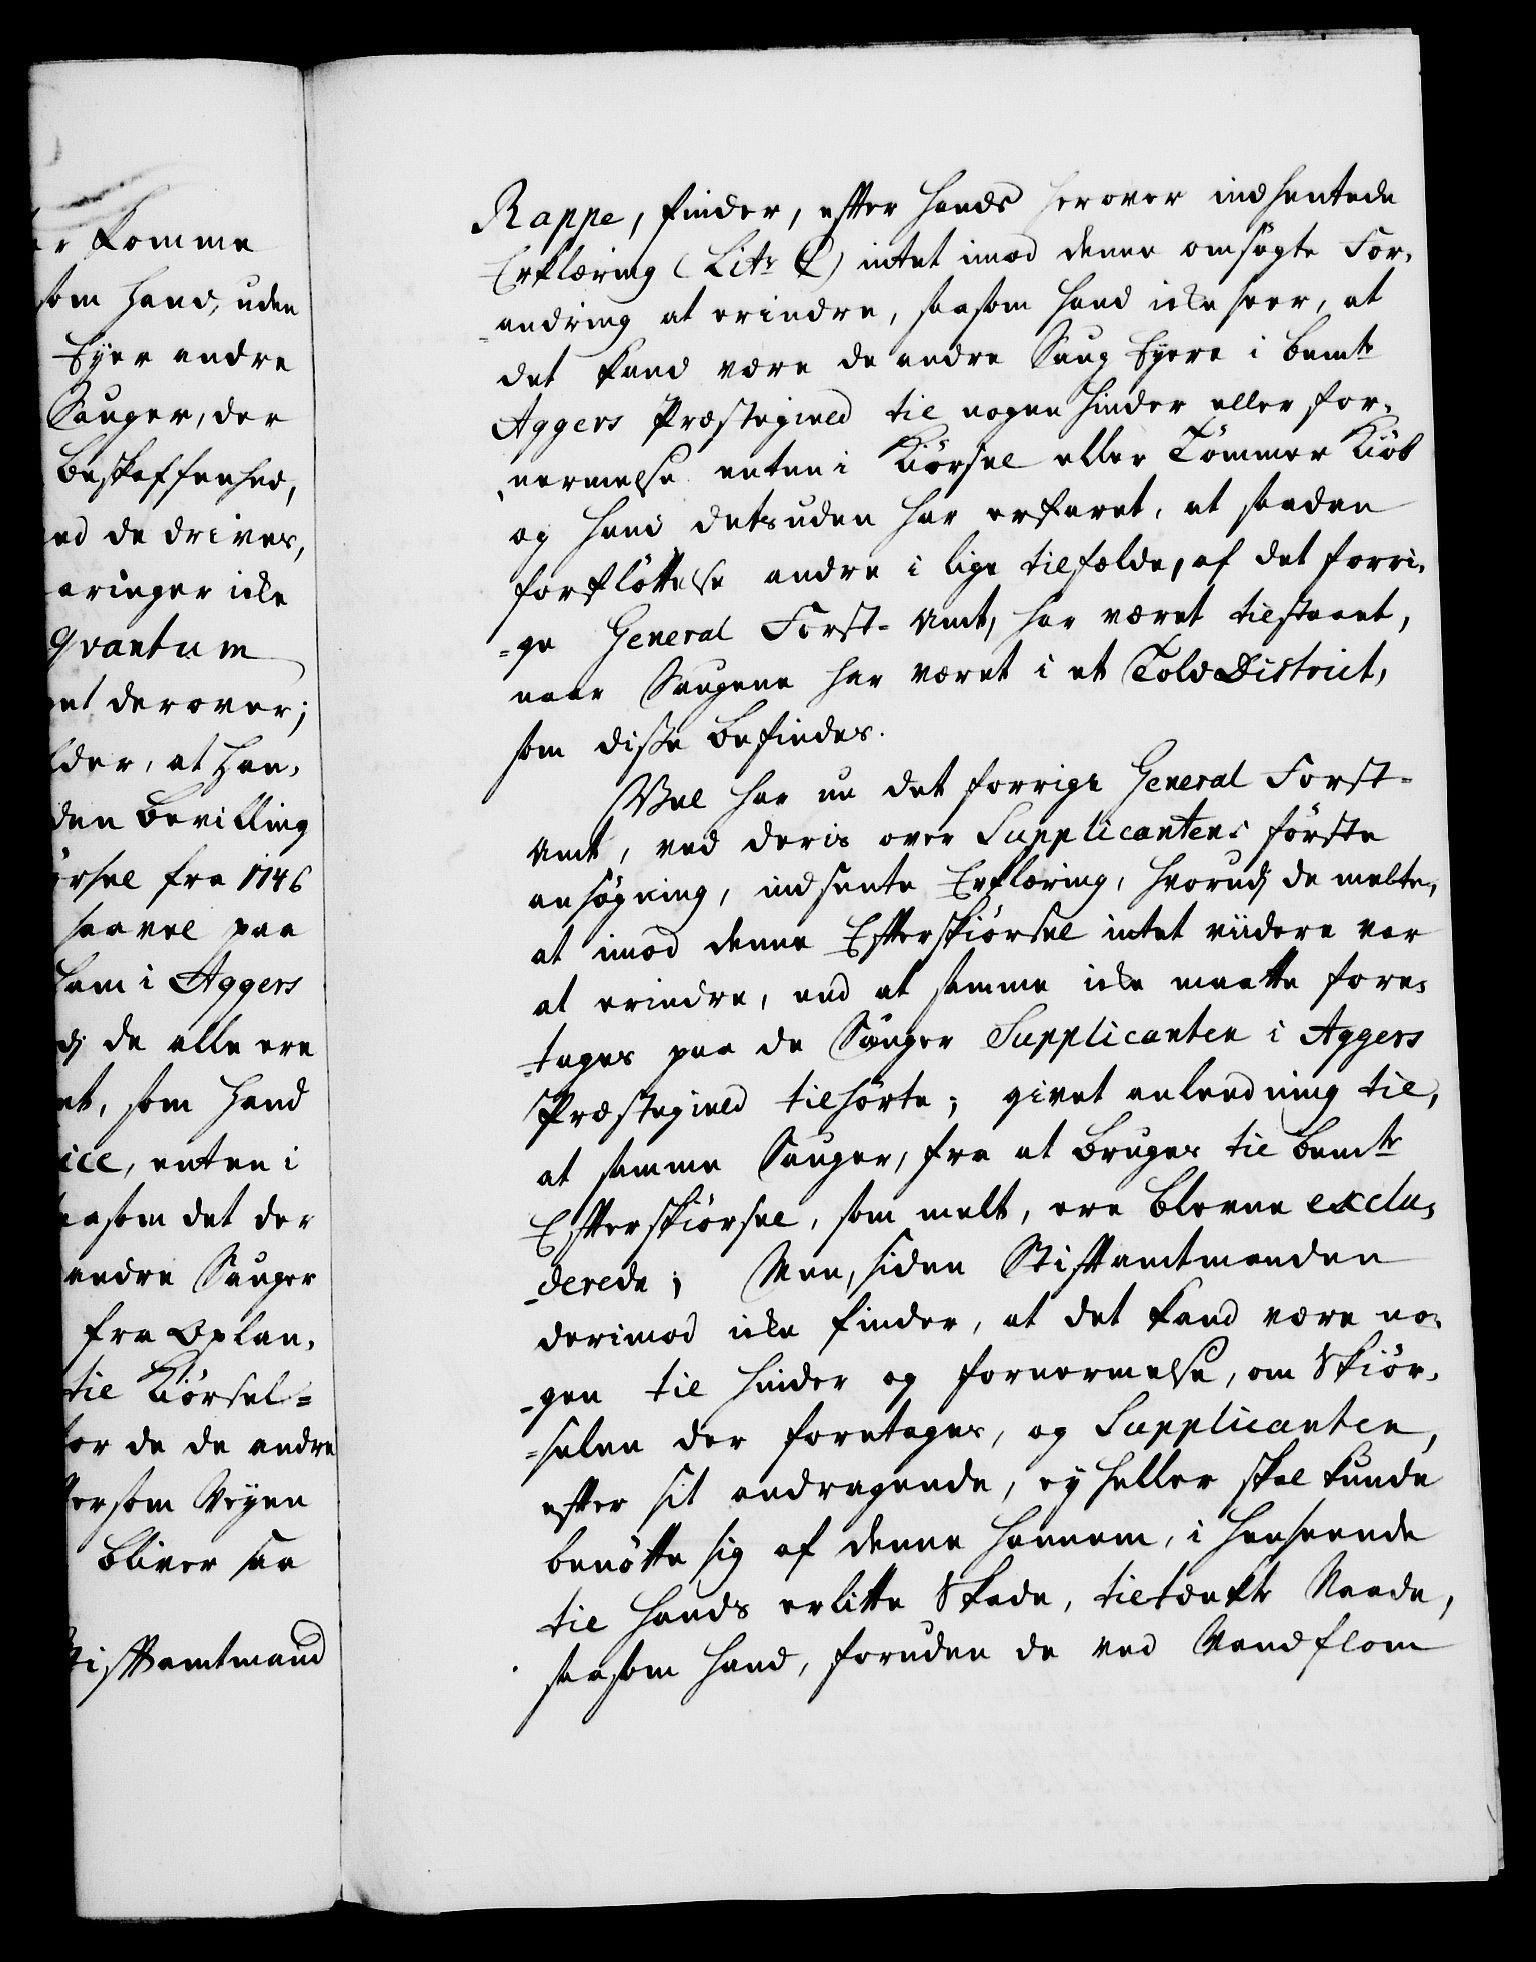 er komme
som Hand, uden
Eyer andre
Sauger, der
beskaffenhed,
ed de drives,
aringer icke
qvantum
et derover;
lder, at Han-
den Bevilling
ørsel fra 1746
saavel paa
ham i Aggers
dj de alle ere
et, som Hand
ice, enten i
saasom det der
andre Sauger
fra Oplan-
til Kiørsel-
for de de andre
ersom Veyen
bliver saa
Stiftamtmand
Rappe, finder, efter hands herover indhentede
Erklæring (Litr C) intet imod denne omsøgte For-
-andring at erindre, saasom hand icke seer, at
det kand være de andre Saug Eyere i bemte
Aggers Præstegield til nogen hinder eller for-
nermelse enten i Kiørsel eller Tømmer Kiøb
og hand detsuden har erfaret, at saadan
forfløttelse andre i lige tilfælde, af det forri-
-ge General Forst-Amt, har været tilstaaet,
naar Saugene har været i et Told District,
som disse befindes.
Vel har nu det forrige General Forst-
Amt, ved deris over Supplicantens første
ansøgning, indsente Erklæring, hvorudj de melte,
at imod denne Efterskiørsel intet viidere var
at erindre, end at samme icke maatte fore-
-tages paa de Sauger Supplicanten i Aggers
Præstegield tilhørte; givet anleedning til,
at samme Sauger, fra at bruges til bemte
Efterskiørsel, som melt, ere blevne exclu-
-derede; Men, siden Stiftamtmanden
derimod icke finder, at det kand være no-
-gen til hinder og fornermelse, om Skiør-
-selen der foretages, og Supplicanten,
efter sit andragende, ey heller skal kunde
benøtte sig af denne hannem, i henseende
til hands erlitte Skade, tiltænkte Naade,
saasom hand, foruden de ved Vandflom